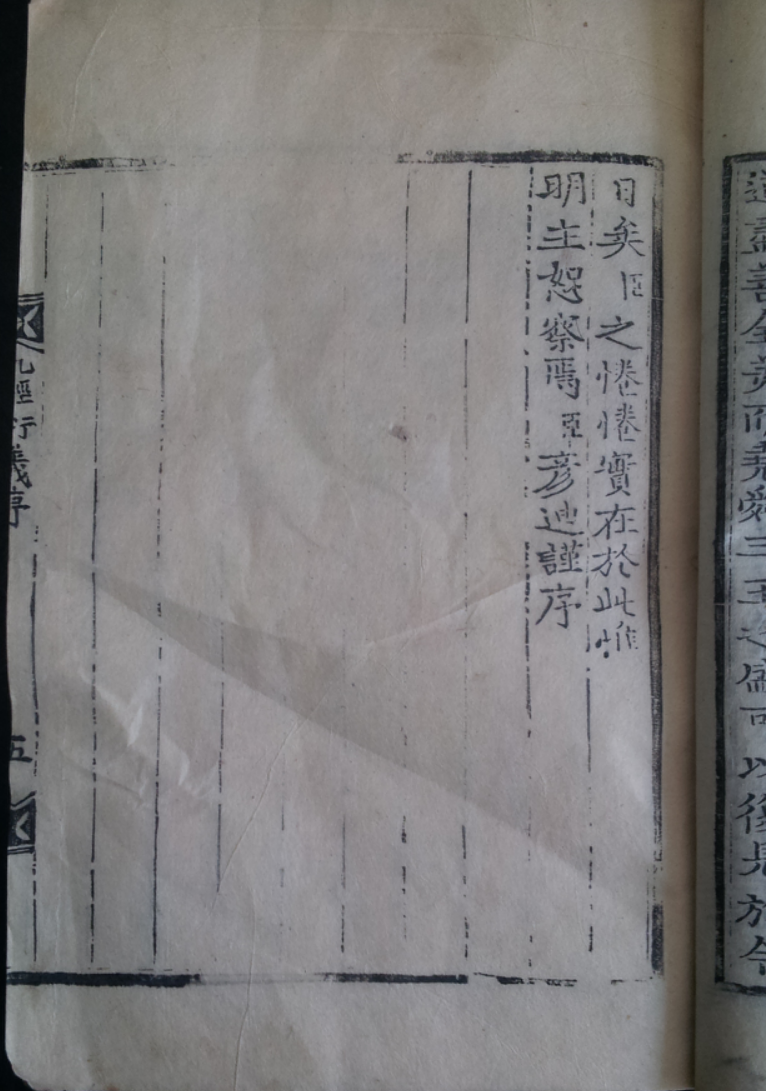 道盡善全美而堯舜三王之盛可以復見於今
日矣臣之惓惓實在於此惟
明主恕察焉臣彦迪謹序
九經衍義序
五